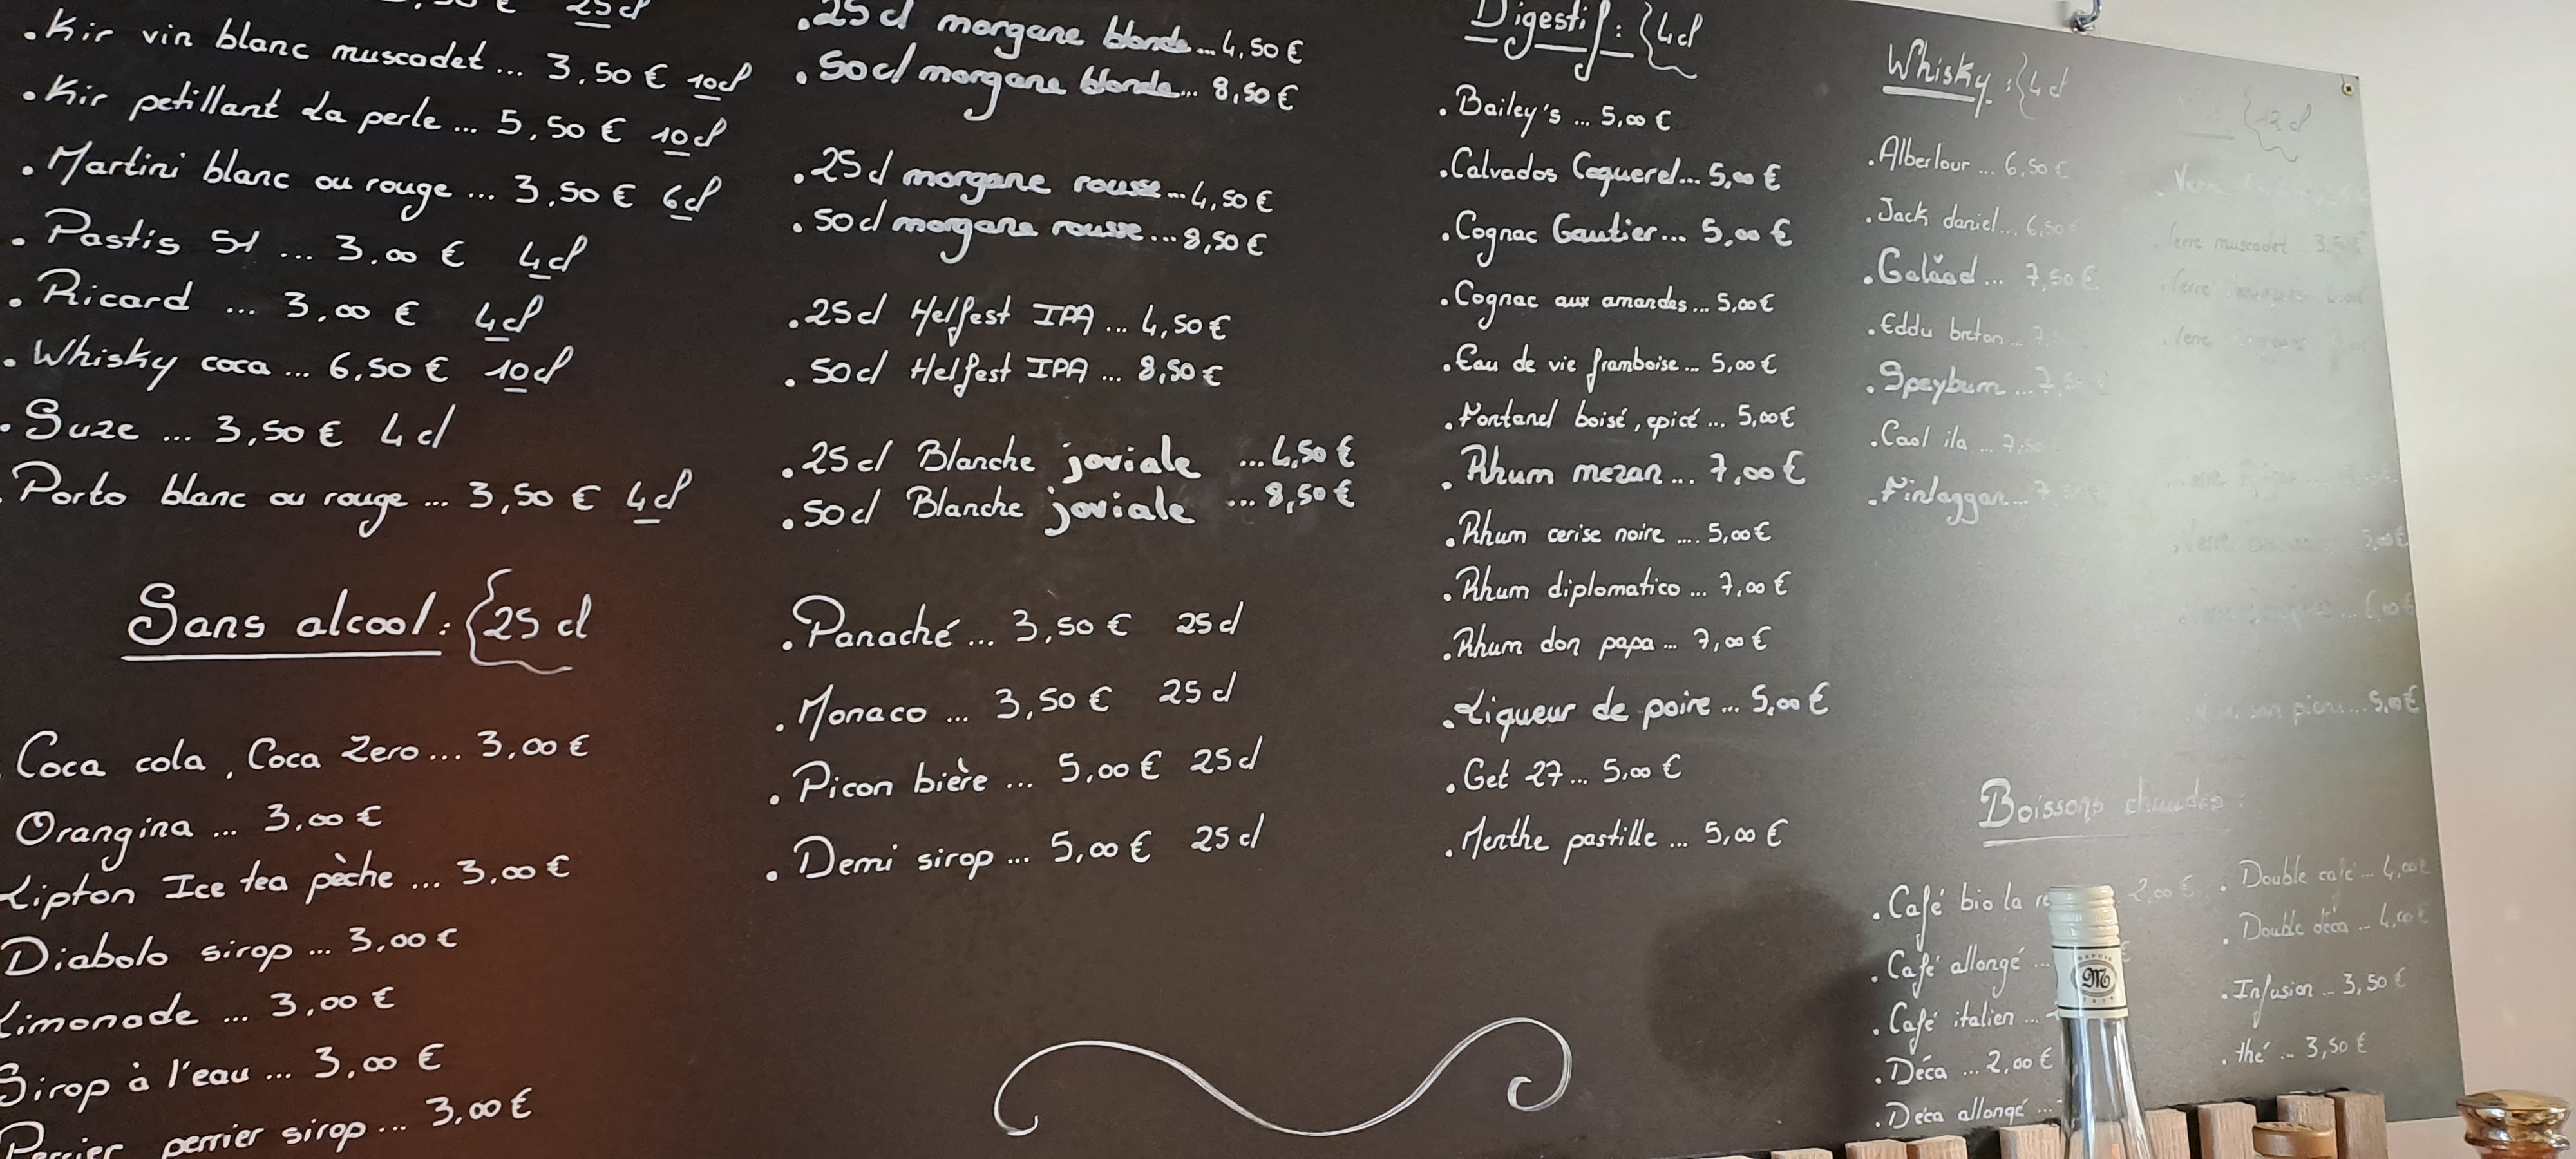 25cl
. Kir vin blanc muscadet ... 3,50 € 10cl
. Kir petillant La perle ... 5,50 € 10cl
. Martini blanc ou rouge ... 3,50 € 6cl
. Pastis 51 ... 3.00 € 4cl
. Ricard ... 3,00 € 4cl
. Whisky coca ... 6,50 € 10cl
. Suze ... 3,50 € 4cl
. Porto blanc ou rouge ... 3,50 € 4cl
Sans alcool : {25 cl
Coca cola, Coca Zero ... 3,00 €
Orangina ... 3,00 €
Lipton Ice tea pèche ... 3,00 €
Diabolo sirop ... 3,00 €
Limonade ... 3,00 €
Sirop à l'eau ... 3,00 €
Perrier perrier sirop ... 3,00 €
. 25cl morgane blonde ... 4,50 €
. 50cl morgane blonde ... 8,50 €
. 25cl morgane rousse ... 4,50 €
. 50cl morgane rousse ... 8,50 €
. 25cl Helfest IPA ... 4,50 €
. 50cl Helfest IPA ... 8,50 €
. 25cl Blanche joviale ... 4,50 €
. 50cl Blanche joviale ... 8,50 €
. Panaché ... 3,50 € 25cl
. Monaco ... 3,50 € 25cl
. Picon bière ... 5,00 € 25cl
. Demi sirop ... 5,00 € 25cl
Digestif : {4cl
. Bailey's ... 5,00 €
. Calvados Coquerel ... 5,00 €
. Cognac Gautier ... 5,00 €
. Cognac aux amandes ... 5,00 €
. Eau de vie framboise ... 5,00 €
. Fontanel boisé, epicé ... 5,00 €
. Rhum mezan ... 7,00 €
. Rhum cerise noire .... 5,00 €
. Rhum diplomatico ... 7,00 €
. Rhum don papa ... 7,00 €
. Liqueur de poire ... 5,00 €
. Get 27 ... 5,00 €
. Menthe pastille ... 5,00 €
Whisky : {4cl
. Alberlour ... 6,50 €
. Jack daniel ... 6,50 €
. Galaad ... 7,50 €
. Eddu breton ... 7
. Speyburn ... 7,50
. Caol ila ... 7,50
. Finlaggan ... 7,50
{12 cl
. Verre
. Verre muscadet 3,50 €
. Verre
. Verre
5,00 €
... 6,00 €
... 5,00 €
Boissons chaudes :
. Café bio la 2,00 €
. Café allongé ...
. Café italien ...
. Déca ... 2,00 €
. Déca allongé ...
. Double café ... 4,00 €
. Double déca ... 4,00 €
. Infusion ... 3,50 €
. thé ... 3,50 €
DEPUIS
M